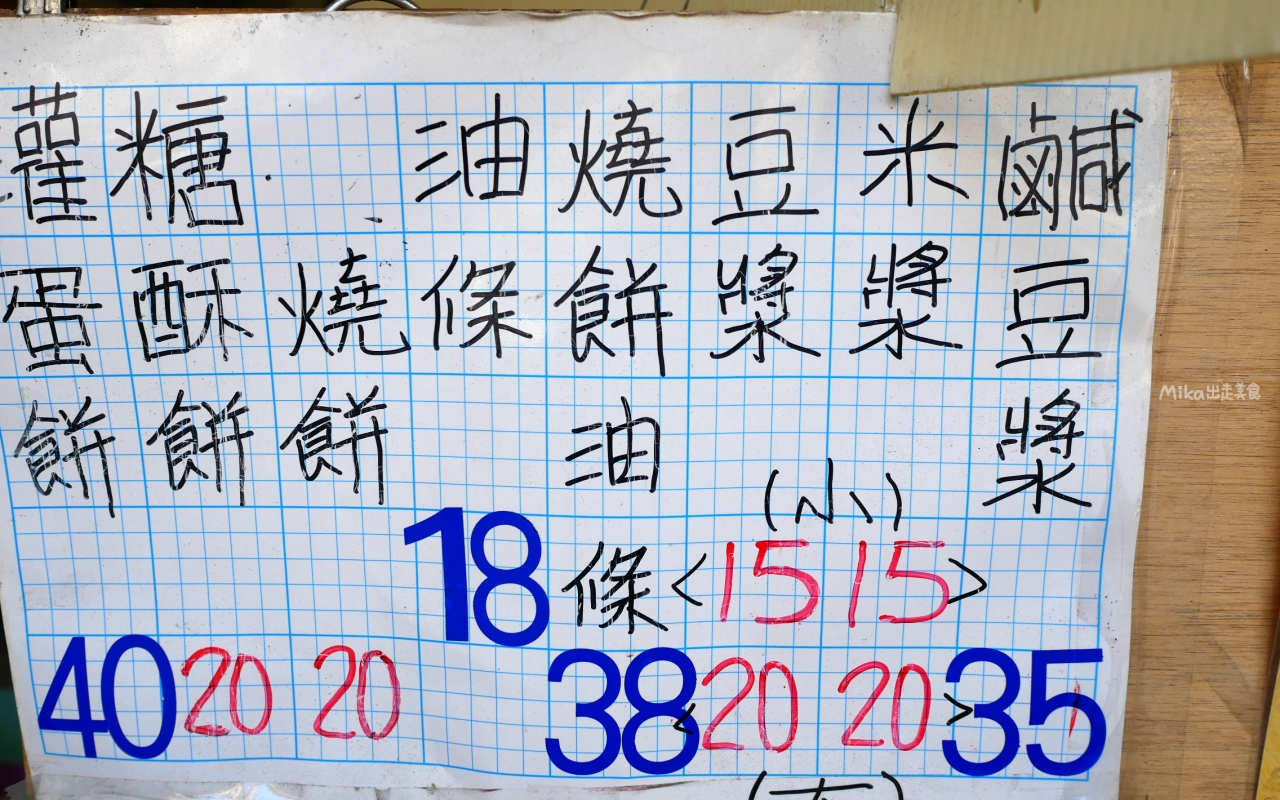 鹹豆漿 35
米漿 15 20
豆漿 15 20
(小)
燒餅油條 38
油條 18
燒餅 20
糖酥餅 20
灌蛋餅 40
Mika出走美食